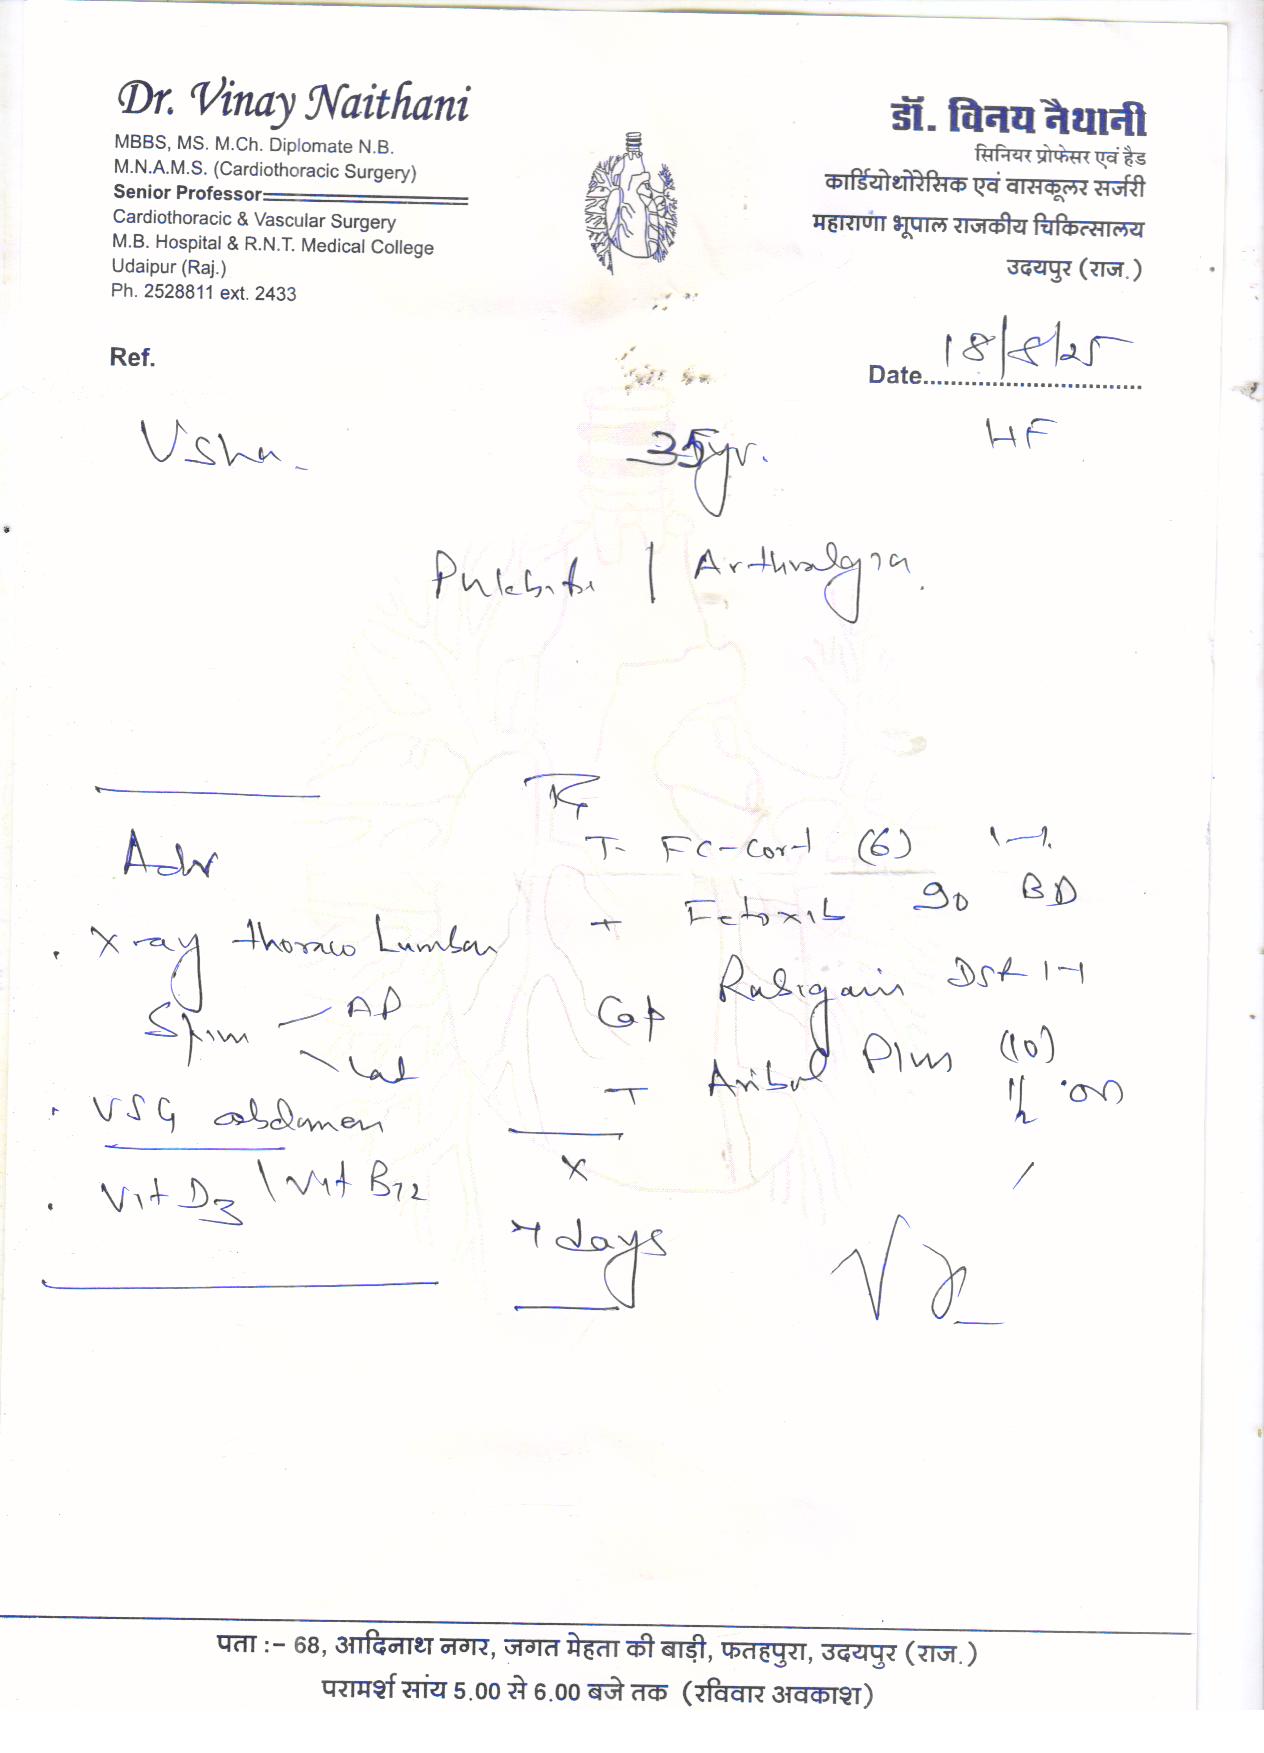 Dr. Vinay Naithani
MBBS, MS. M.Ch. Diplomate N.B.
M.N.A.M.S. (Cardiothoracic Surgery)
Senior Professor
Cardiothoracic & Vascular Surgery
M.B. Hospital & R.N.T. Medical College
Udaipur (Raj.)
Ph. 2528811 ext. 2433
डॉ. विनय नैथानी
सिनियर प्रोफेसर एवं हैड
कार्डियोथोरेसिक एवं वासकूलर सर्जरी
महाराणा भूपाल राजकीय चिकित्सालय
उदयपुर (राज.)
Ref.
Date 18/8/25
Usha 35yr. HF
/ Arthralgia
Adv
X ray thoraco Lumbar
Spine AP
Lat
USG abdomen
Vit D3 / Vit B12
Rx
T- FC-Cort (6) 1-1
T 90 BD
Cap Rabigain DSR 1-1
T Plus (10)
X
7 days
पता :- 68, आदिनाथ नगर, जगत मेहता की बाड़ी, फतहपुरा, उदयपुर (राज.)
परामर्श सांय 5.00 से 6.00 बजे तक (रविवार अवकाश)